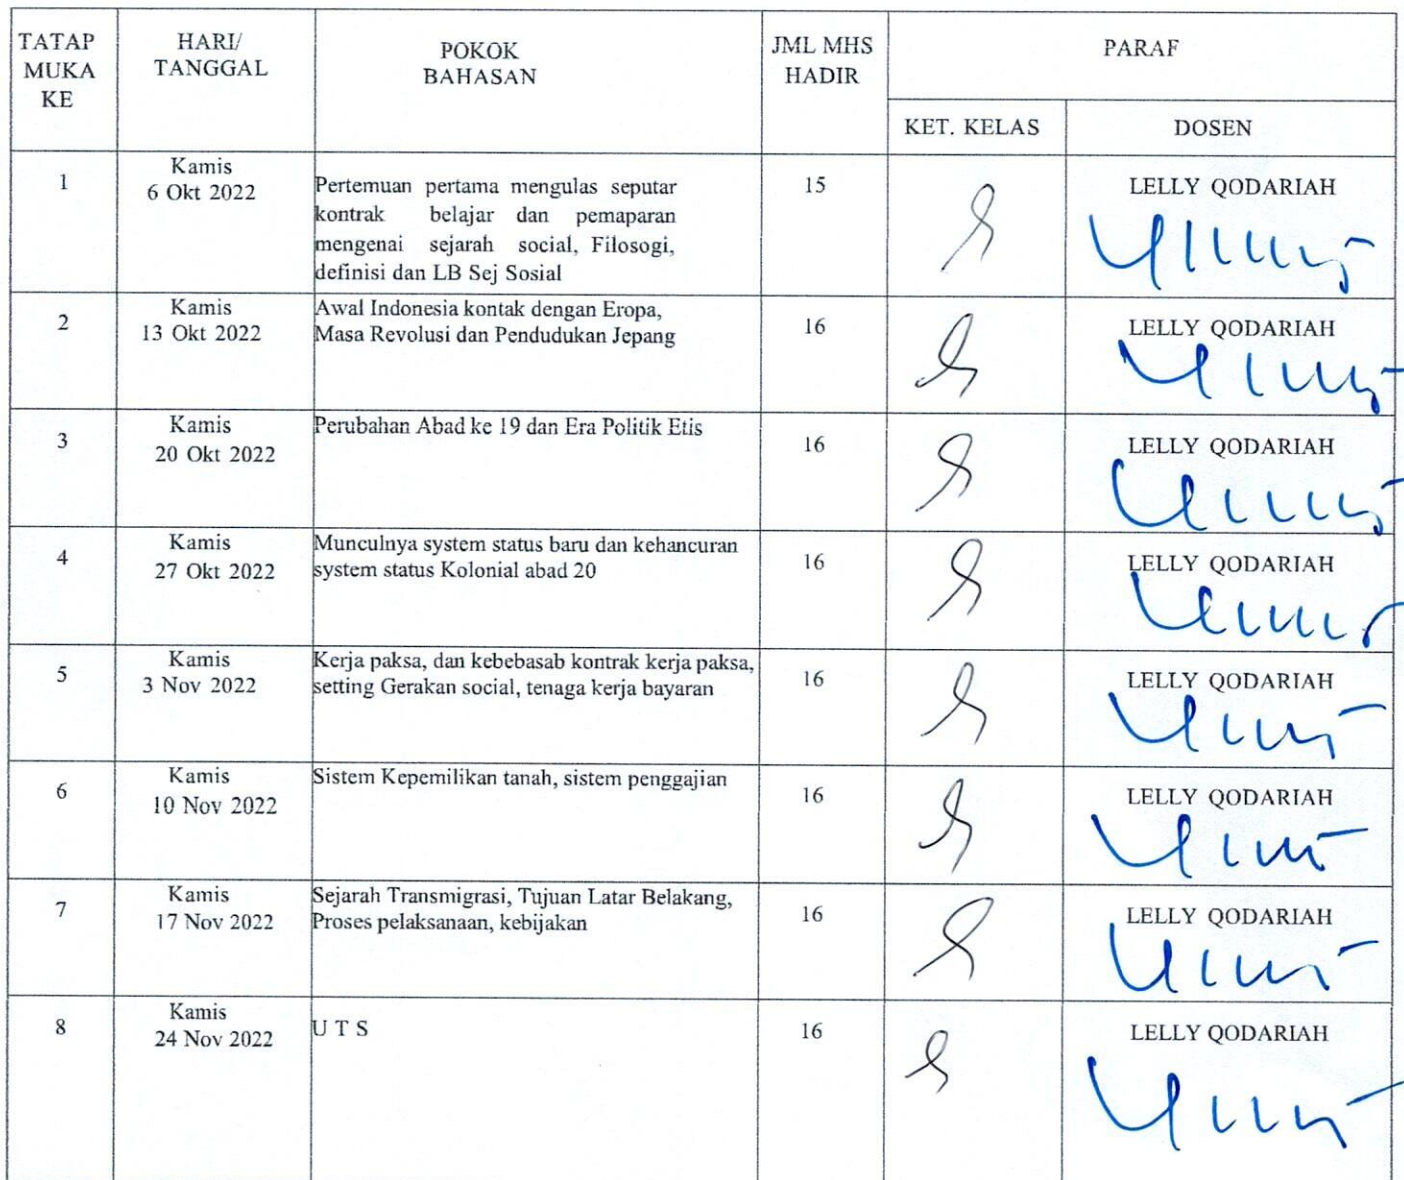 TATAP MUKA KE
HARI/ TANGGAL
POKOK BAHASAN
JML MHS HADIR
PARAF
KET. KELAS
DOSEN
1
Kamis
6 Okt 2022
Pertemuan pertama mengulas seputar
kontrak belajar dan pemaparan
mengenai sejarah social, Filosogi,
definisi dan LB Sej Sosial
15
LELLY QODARIAH
2
Kamis
13 Okt 2022
Awal Indonesia kontak dengan Eropa,
Masa Revolusi dan Pendudukan Jepang
16
LELLY QODARIAH
3
Kamis
20 Okt 2022
Perubahan Abad ke 19 dan Era Politik Etis
16
LELLY QODARIAH
4
Kamis
27 Okt 2022
Munculnya system status baru dan kehancuran
system status Kolonial abad 20
16
LELLY QODARIAH
5
Kamis
3 Nov 2022
Kerja paksa, dan kebebasab kontrak kerja paksa,
setting Gerakan social, tenaga kerja bayaran
16
LELLY QODARIAH
6
Kamis
10 Nov 2022
Sistem Kepemilikan tanah, sistem penggajian
16
LELLY QODARIAH
7
Kamis
17 Nov 2022
Sejarah Transmigrasi, Tujuan Latar Belakang,
Proses pelaksanaan, kebijakan
16
LELLY QODARIAH
8
Kamis
24 Nov 2022
U T S
16
LELLY QODARIAH